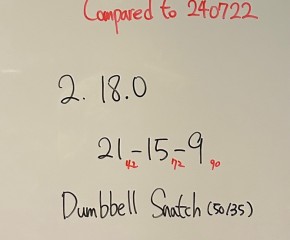 Compared to 240722
2. 18.0
21-15-9
42 72 90
Dumbbell Snatch (50/35)